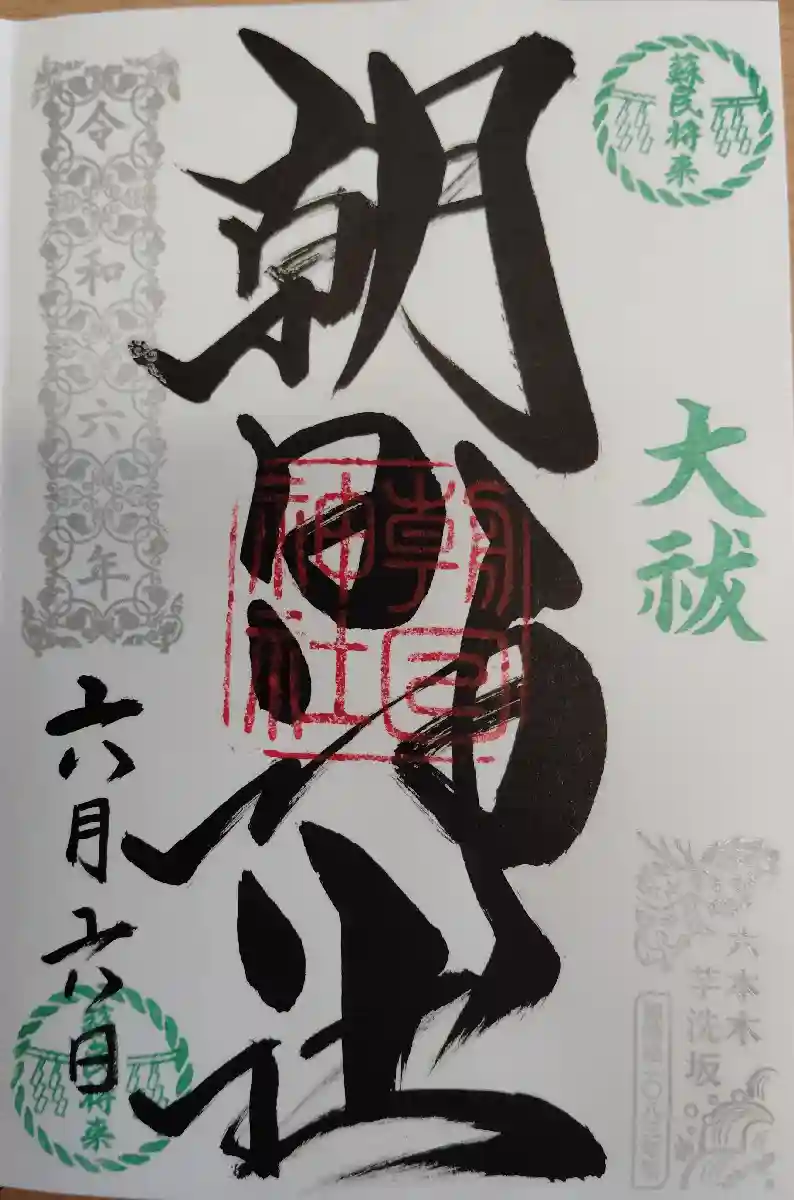 蘇民将来
大祓
六本木
芋洗坂
朝日神社
朝日
神社
令和六年
六月六日
蘇民将来